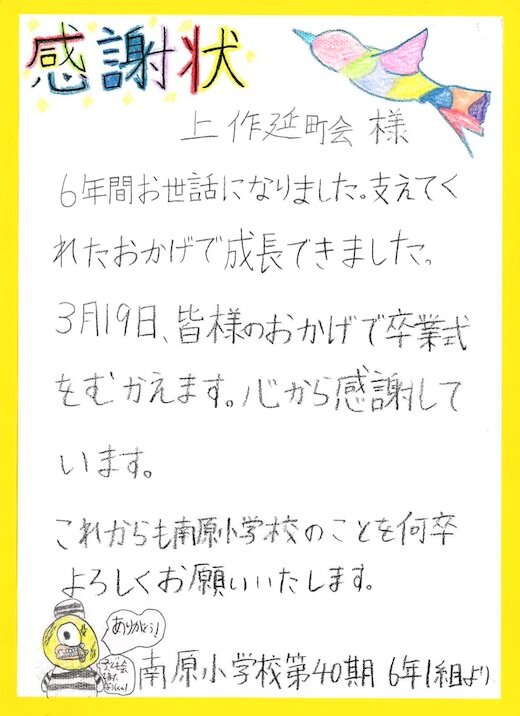 感謝状
上作延町会 様
6年間お世話になりました。支えてく
れたおかげで成長できました。
3月19日、皆様のおかげで卒業式
をむかえます。心から感謝して
います。
これからも南原小学校のことを何卒
よろしくお願いいたします。
ありがとう!
南原小学校第40期 6年1組より